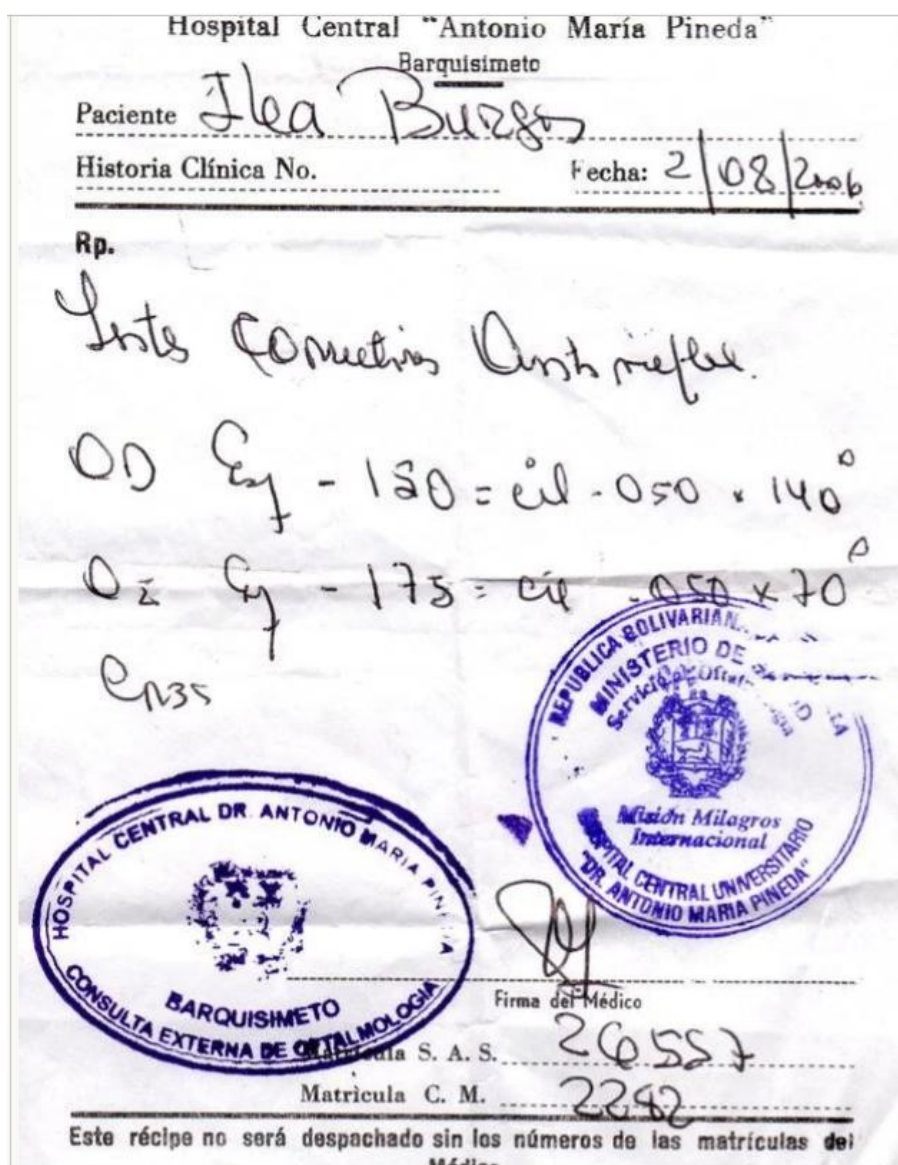 Hospital Central "Antonio María Pineda"
Barquisimeto
Paciente Ilea Burgos
Historia Clínica No. Fecha: 2/08/2006
Rp.
Correctivos
OD Esf - 150 = cil - 050 x 140°
Esf - 175 = cil - 050 x 70°
REPUBLICA BOLIVARIAN
MINISTERIO DE
Servicio de Oftal
Misión Milagros
Internacional
HOSPITAL CENTRAL UNIVERSITARIO
"DR. ANTONIO MARIA PINEDA"
HOSPITAL CENTRAL DR. ANTONIO MARIA PINEDA
BARQUISIMETO
CONSULTA EXTERNA DE OFTALMOLOGIA
Firma del Médico
Matrícula S. A. S. 26557
Matrícula C. M. 2282
Este récipe no será despachado sin los números de las matrículas del
Médico